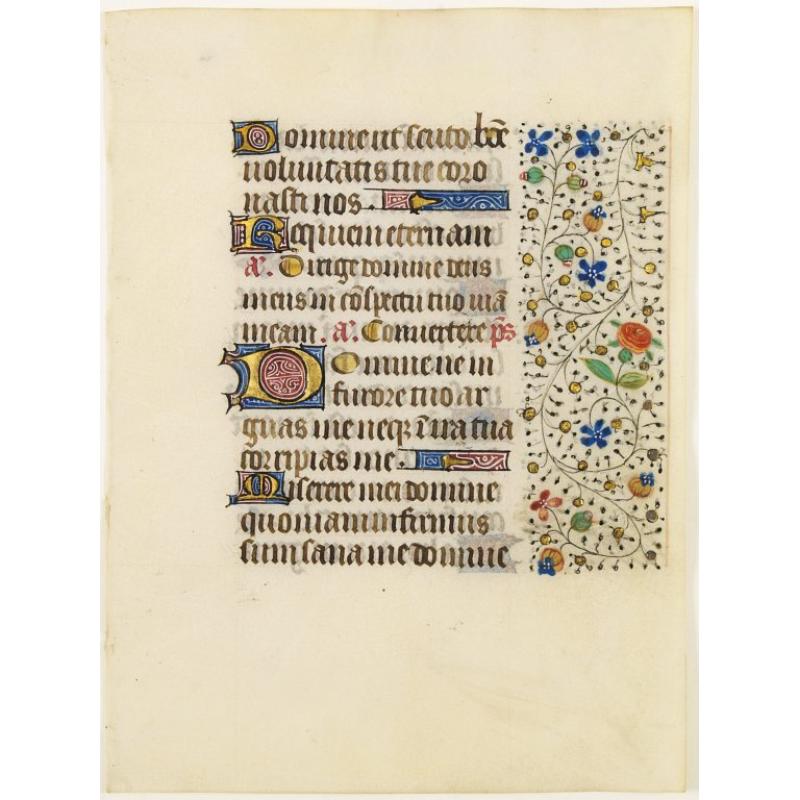 Domine ut scuto bōe
voluntatis tue coro
nasti nos.
Requiem eternam
a'. Dirige domine deus
meus in cōspectu tuo uiā
meam. a'. Convertere. ps
Domine ne in
furore tuo ar
guas me neqz ī ira tua
corripias me.
Miserere mei domine
quoniam infirmus
sum sana me domine